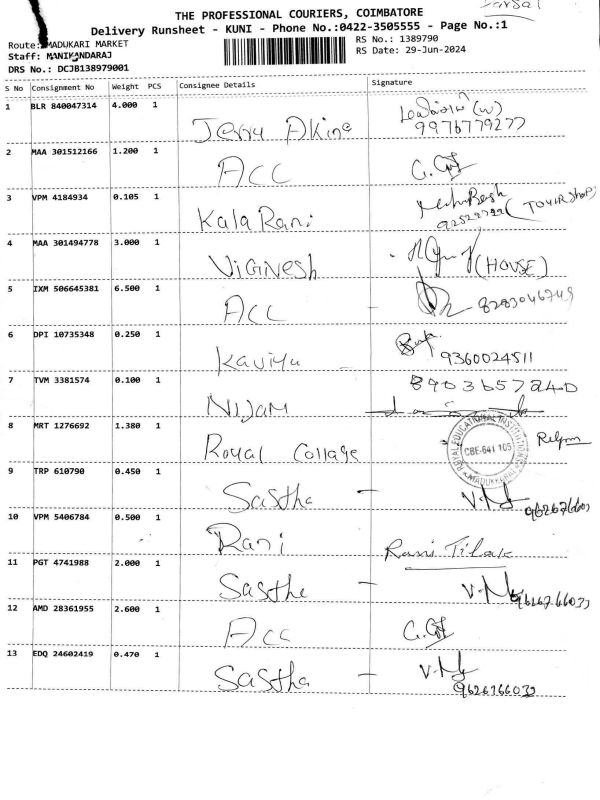 THE PROFESSIONAL COURIERS, COIMBATORE
Delivery Runsheet - KUNI - Phone No.:0422-3505555 - Page No.:1
Route: MADUKARI MARKET
RS No.: 1389790
Staff: MANIKANDARAJ
RS Date: 29-Jun-2024
DRS No.: DCJB138979001
S No Consignment No Weight PCS Consignee Details Signature
1 BLR 840047314 4.000 1 Jerry (W)
9976779277
2 MAA 301512166 1.200 1 ACC
3 VPM 4184934 0.105 1 Kala Rani
4 MAA 301494778 3.000 1 ViGiNesh (HOUSE)
5 IXM 506645381 6.500 1 ACC - 8283046749
6 DPI 10735348 0.250 1 Kaviya 9360024511
7 TVM 3381574 0.100 1 Nijam 8903657240
8 MRT 1276692 1.380 1 Royal Collage
ROYAL EDUCATIONAL INSTITUTIONS
CBE-641 105
MADUKKARAI
9 TRP 610790 0.450 1 Sastha -
10 VPM 5406784 0.500 1 Rani Rani Tilak
11 PGT 4741988 2.000 1 Sastha -
12 AMD 28361955 2.600 1 ACC
13 EDQ 24602419 0.470 1 Sastha - 9626766033